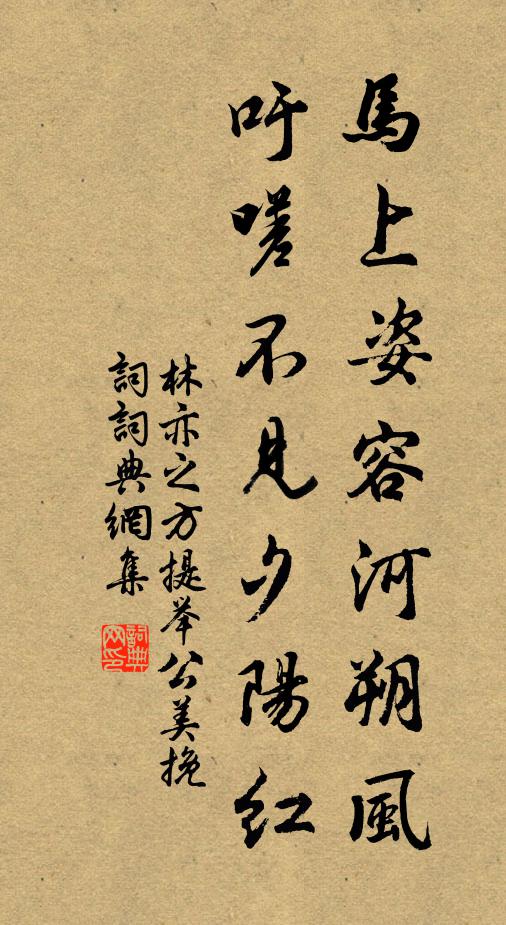 馬上姿容河朔風
吁嗟不見夕陽紅
林亦之方提举公美挽
詞詞典網集
詞典网印